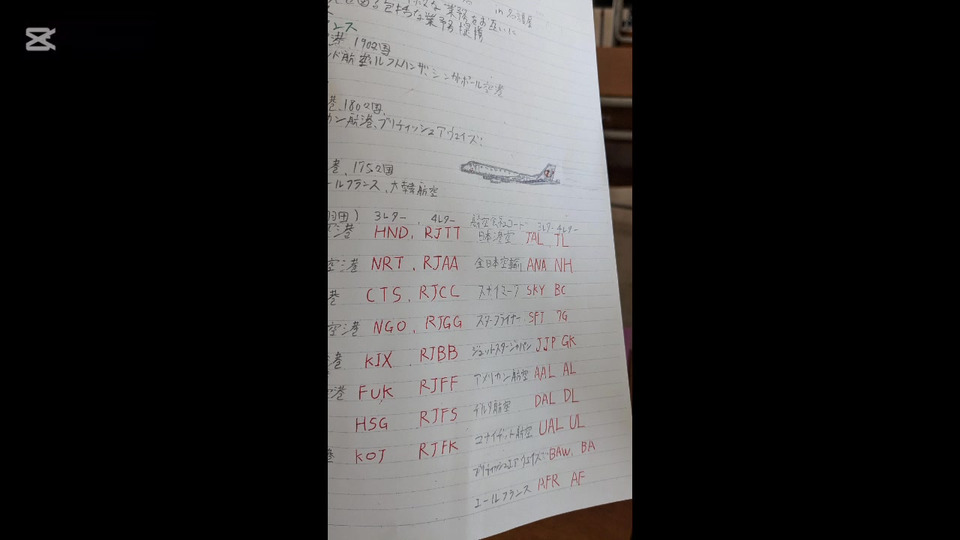 CapCut
in 名護屋
な業務をお互いに
包括的な業務提携
ンス
港 1902国
ンド航空、ルフトハンザ、シンガポール空港
港、1802国
カン航港、ブリティッシュアウェイズ!
港、1752国
ールフランス、大韓航空
羽田) 3レター 4レター
空港 HND, RJTT 日本港空 JAL TL
空港 NRT, RJAA 全日本空輸 ANA NH
港 CTS, RJCC スカイマーク SKY BC
空港 NGO, RJGG スターフライヤー SFJ 7G
港 KIX RJBB ジェットスタージャパン JJP GK
空港 FUK RJFF アメリカン航空 AAL AL
HSG RJFS デルタ航空 DAL DL
港 KOJ RJFK ユナイテット航空 UAL UL
ブリティッシュエアウェイズ BAW, BA
エールフランス AFR AF